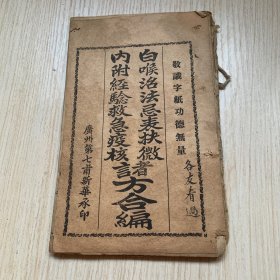 敬議字紙功德無量
各友看過
白喉治法忌表抉微者
內附經驗救急疫核諸方合編
廣州第七甫新華承印